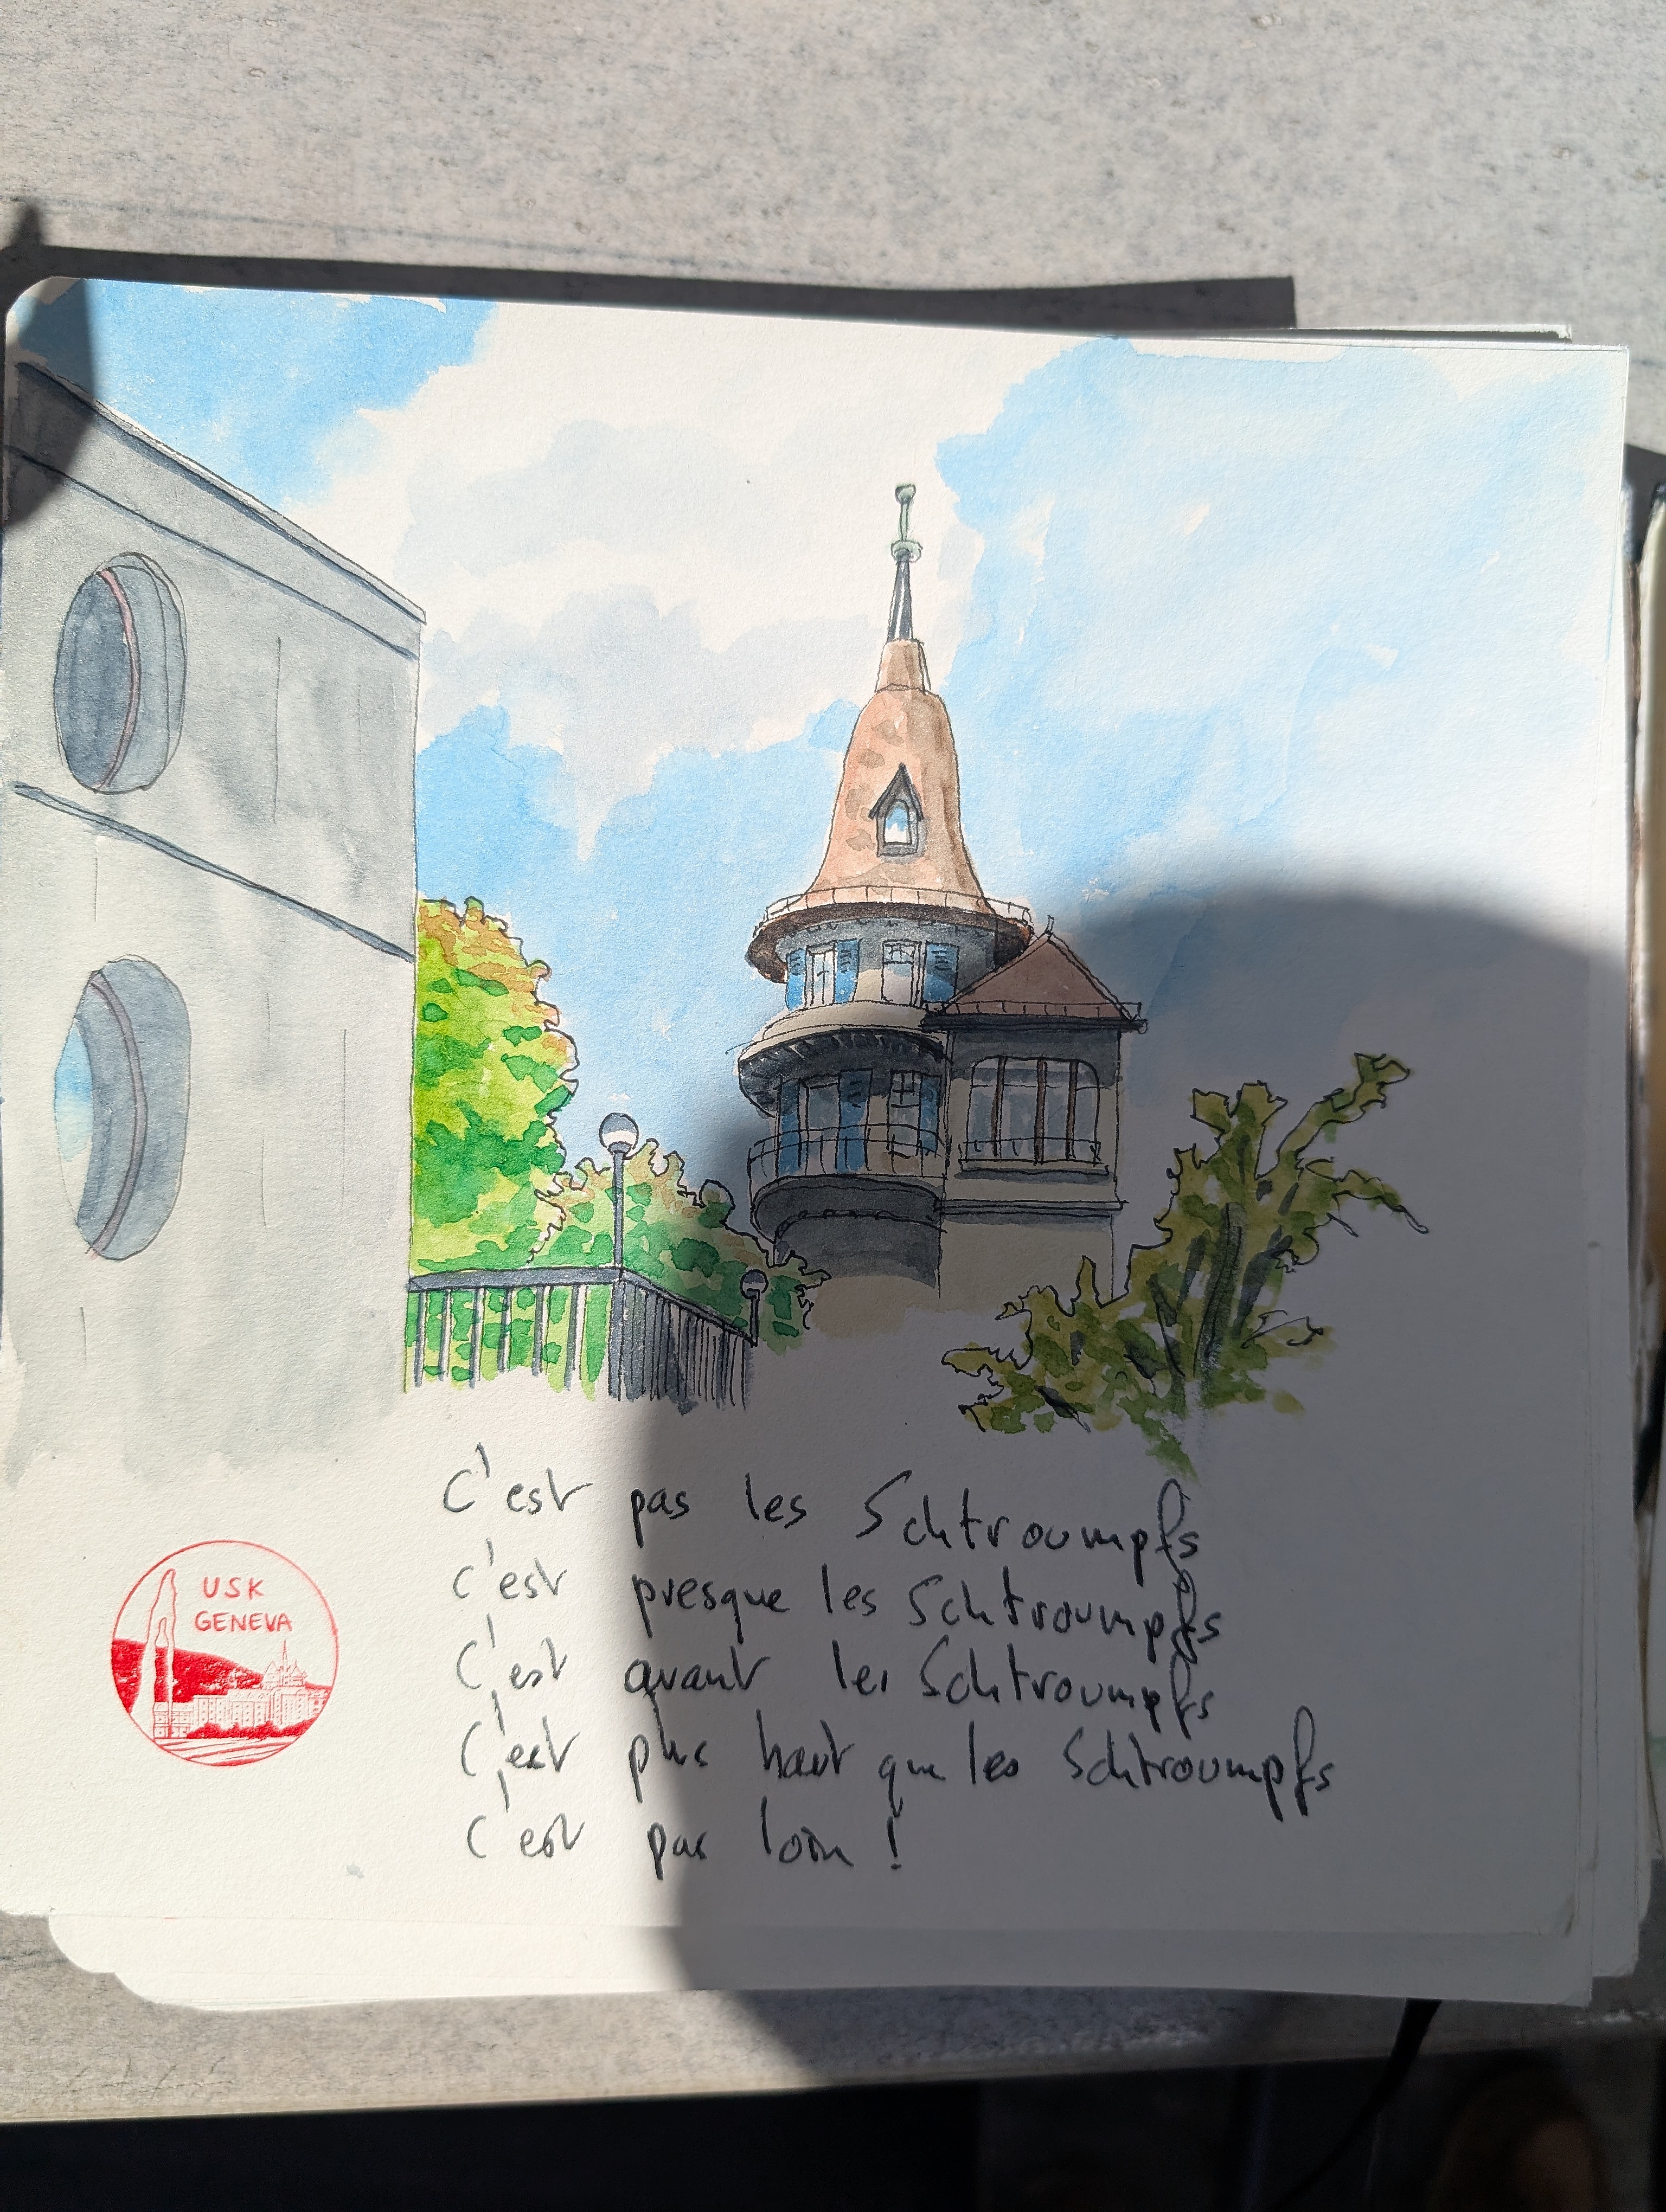 C'est pas les Schtroumpfs
C'est presque les Schtroumpfs
C'est avant les Schtroumpfs
C'est plus haut que les Schtroumpfs
C'est pas loin !
USK
GENEVA